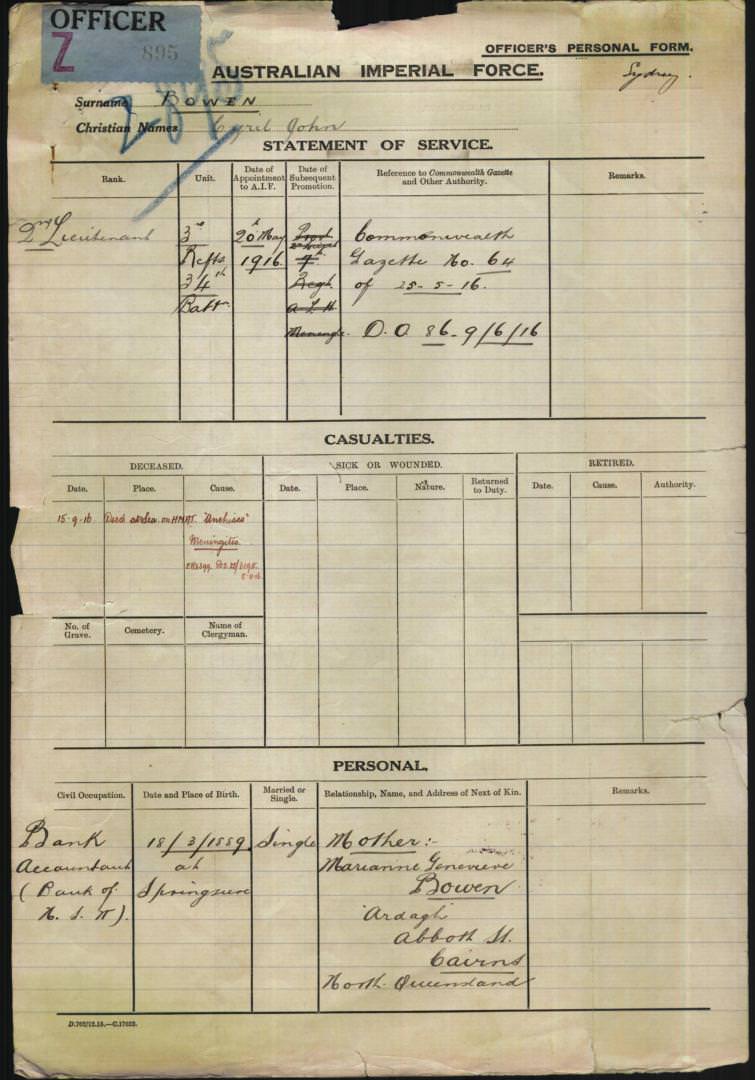 OFFICER
Z
895
Z-895
OFFICER'S PERSONAL FORM.
AUSTRALIAN IMPERIAL FORCE.
Sydney.
Surname BOWEN
Christian Names Cyril John
STATEMENT OF SERVICE.
Rank.
Unit.
Date of Appointment to A.I.F.
Date of Subsequent Promotion.
Reference to Commonwealth Gazette and Other Authority.
Remarks.
2nd Lieutenant
3rd
Refts
34th
Battn.
20th May
1916
7th
Regt.
A L H
Menangle.
Commonwealth
Gazette No. 64
of 25-5-16.
D.O. 86-9/6/16
CASUALTIES.
DECEASED.
SICK OR WOUNDED.
RETIRED.
Date.
Place.
Cause.
Date.
Place.
Nature.
Returned to Duty.
Date.
Cause.
Authority.
15-9-16
Died at Sea on HMAT. "Anchises"
Meningitis
No. of Grave.
Cemetery.
Name of Clergyman.
PERSONAL.
Civil Occupation.
Date and Place of Birth.
Married or Single.
Relationship, Name, and Address of Next of Kin.
Remarks.
Bank
Accountant
(Bank of
N. S. W).
18/3/1889
at
Springsure
Single
Mother:-
Marianne Genevieve
Bowen
"Ardagh"
Abbott St.
Cairns
North Queensland
D.702/12.15.—C.17622.